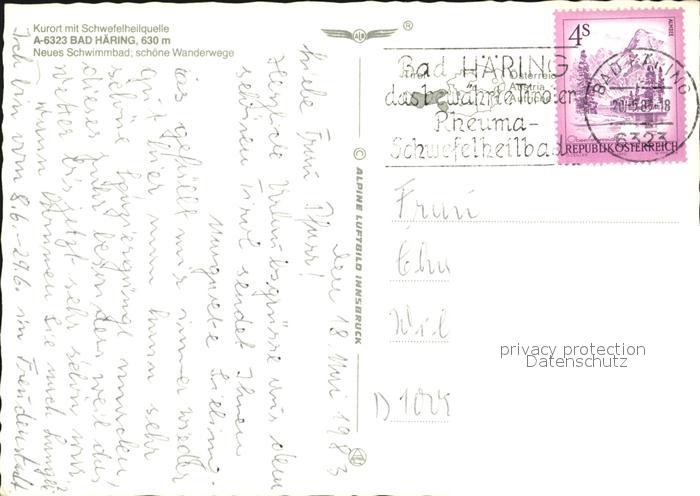 Kurort mit Schwefelheilquelle
A-6323 BAD HÄRING, 630 m
Neues Schwimmbad; schöne Wanderwege
den 18. Mai 1983
Liebe Frau
Herzliche Urlaubsgrüsse aus dem
schönen Tirol sendet Ihnen
Margarete
es gefällt mir immer wieder
gut hier man kann sehr
schöne Spaziergänge machen
dieses Jahr besonders weil das
Wetter bis jetzt sehr schön war.
wann kommen Sie nach
Ich bin vom 8.6.-29.6. in Freudenstadt
© ALPINE LUFTBILD INNSBRUCK
®
Bad HÄRING
das bewährte Tiroler
Rheuma-
Schwefelheilbad
Österreich
Austria
4S
ALMSEE
REPUBLIK ÖSTERREICH
BAD HÄRING
6323
Frau
D 1000
privacy protection
Datenschutz